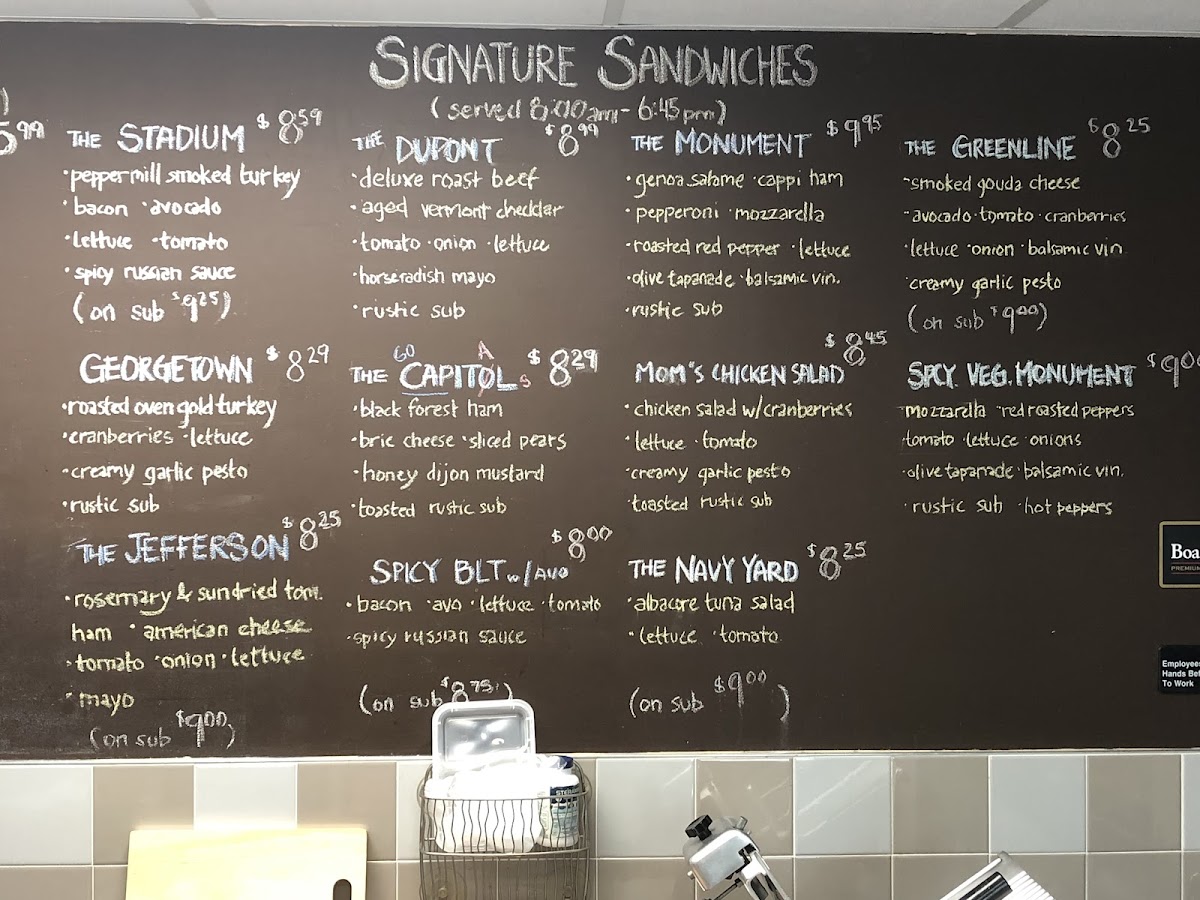 SIGNATURE SANDWICHES
(served 8:00am - 6:45pm)
5.99
THE STADIUM $8.59
·peppermill smoked turkey
·bacon ·avocado
·lettuce ·tomato
·spicy russian sauce
(on sub $9.25)
THE DUPONT $8.99
·deluxe roast beef
·aged vermont cheddar
·tomato ·onion ·lettuce
·horseradish mayo
·rustic sub
THE MONUMENT $9.95
·genoa salame ·cappi ham
·pepperoni ·mozzarella
·roasted red pepper ·lettuce
·olive tapanade ·balsamic vin.
·rustic sub
THE GREENLINE $8.25
·smoked gouda cheese
·avocado ·tomato ·cranberries
·lettuce ·onion ·balsamic vin
creamy garlic pesto
(on sub $9.00)
GEORGETOWN $8.29
·roasted oven gold turkey
·cranberries ·lettuce
·creamy garlic pesto
·rustic sub
GO A
THE CAPITOLS $8.29
·black forest ham
·brie cheese ·sliced pears
·honey dijon mustard
·toasted rustic sub
MOM'S CHICKEN SALAD $8.45
·chicken salad w/cranberries
·lettuce ·tomato
·creamy garlic pesto
·toasted rustic sub
SPCY. VEG. MONUMENT $9.00
·mozzarella ·red roasted peppers
tomato ·lettuce ·onions
·olive tapanade ·balsamic vin.
·rustic sub ·hot peppers
THE JEFFERSON $8.25
·rosemary & sundried tom.
ham ·american cheese
·tomato ·onion ·lettuce
·mayo
(on sub $9.00)
SPICY BLT w/AVO $8.00
·bacon ·avo ·lettuce ·tomato
·spicy russian sauce
(on sub $8.75)
THE NAVY YARD $8.25
·albacore tuna salad
·lettuce ·tomato
(on sub $9.00)
Boa
PREMIUM
Employees
Hands Bef
To Work